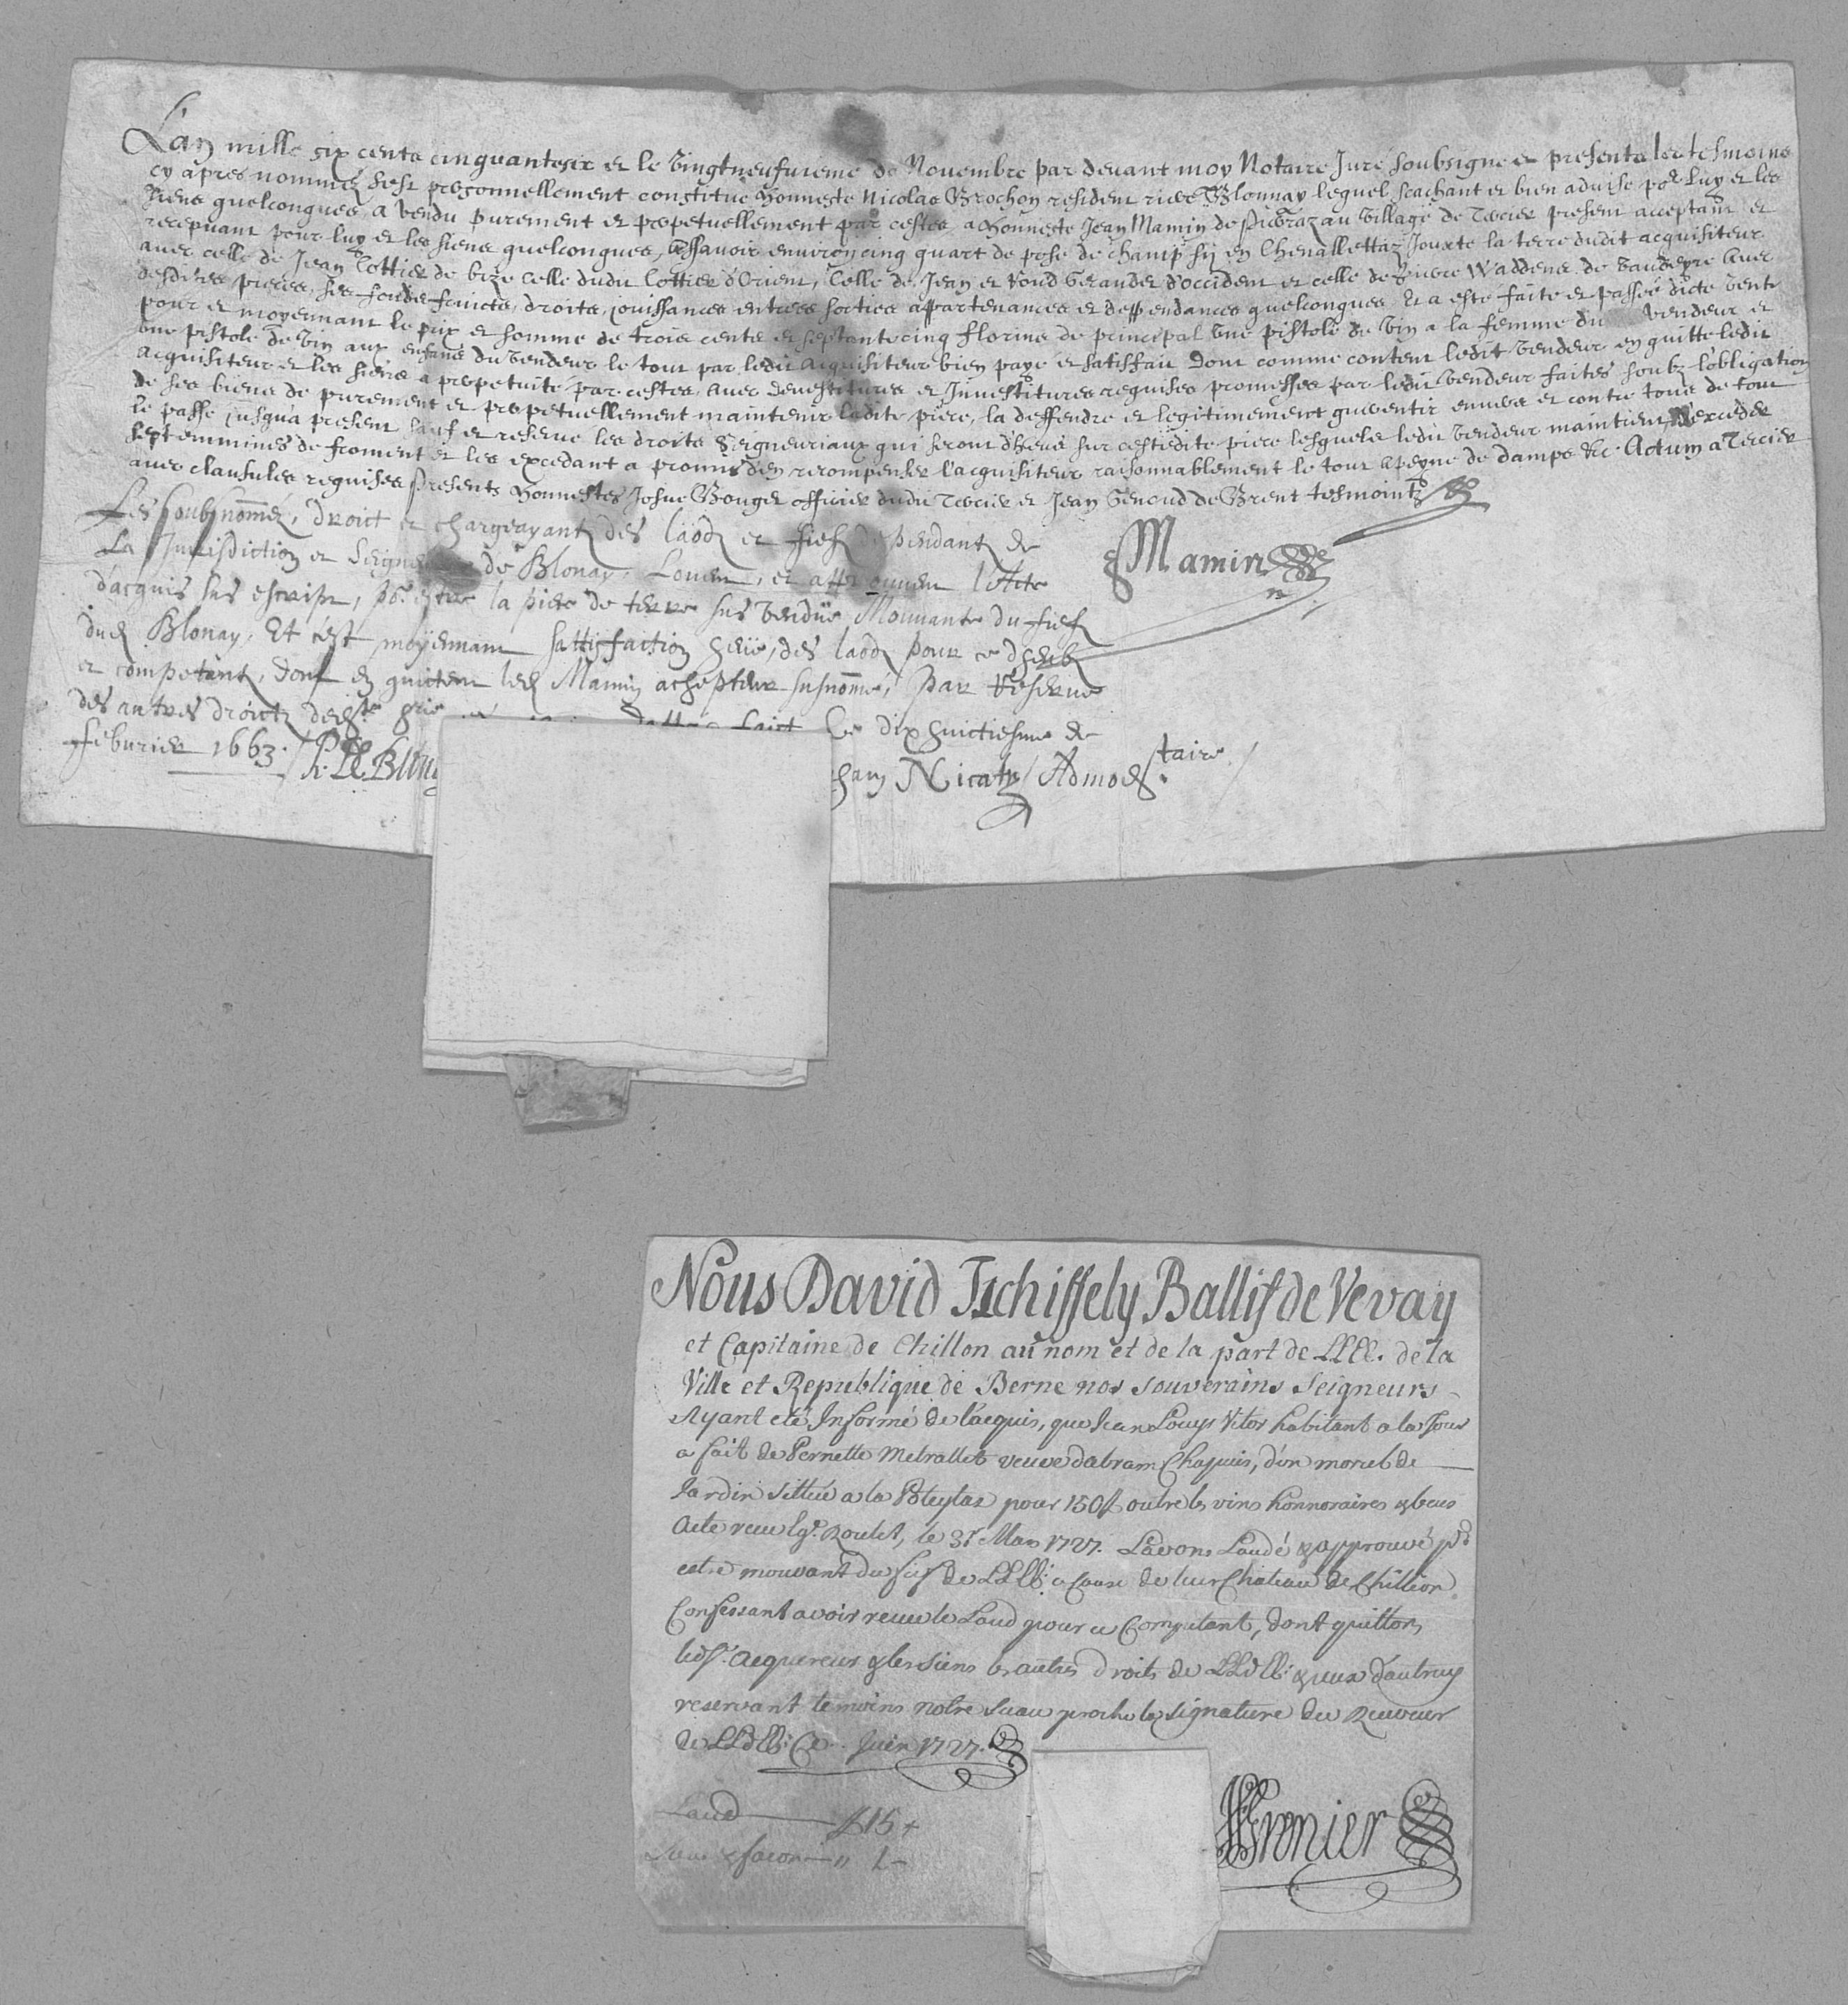 L'an mille six cents cinquantesix et le vingtneufuieme de Nouembre par deuant moy Notaire Juré soubsigné et presents les tesmoins
cy apres nommez s'est personnellement constitué honneste Nicolas Brochon resident riere Blonnay lequel scachant et bien aduise por luy et les
siens quelconques, a vendu purement et perpetuellement par cestes a honneste Jean Mamin de au village de Tercier present acceptant et
recepuant pour luy et les siens quelconques, assauoir enuiron cinq quart de pose de champ sij en Chenallettaz jouxte la terre dudit acquisiteur
auec celle de Jean Cottier de bize celle dudit Cottier d'Orient, Celle de Jean et Gerauder d'occident et celle de de vaudeyre auec
desdites pieces, ses fonds fruicts, droits, jouissances entrees sorties appartenances et deppendances quelconques. Et a esté faite et passée dicte vente
pour et moyennant le prix et somme de trois cents et septante cinq florins de principal une pistole de vin a la femme du vendeur et
une pistole de vin aux enfans du vendeur le tout par ledit acquisiteur bien payé et satisfait Dont comme content ledit vendeur en quitte ledit
acquisiteur et les siens a perpetuite par cestes, auec deuestitures et Inuestitures requises promesses par ledit vendeur faites soubz l'obligation
de ses biens de purement et perpetuellement maintenir ladite piece, la deffendre et legitimement guerentir enuers et contre tous de tout
le passé jusqu'a present sauf et reserué les droits Seigneuriaux qui seront dheus sur cestedite piece lesquels ledit vendeur maintient exceder
sept emmines de froment et les excedant a promis d'en recompenser l'acquisiteur raisonnablement le tout a peyne de damps &c. Actum a Tercier
auec clausules requises presents honnestes Josue Bonget officier dudit Tercier et Jean Genoud de Brent tesmointz
Les soubsnommés, droict et chargeayantz des laodz et fiefz dependantz de
La Jurisdiction et de Blonay, Louent, et appreuuent l'Acte
d'acquis sus escript, por estre la piece de terre sus vendue Mouuante du fief
dud Blonay, Et c'est moyennant sattisfaction heüe, des laodz pour ce dheubz
et competantz, dont en quictent led Mamin achepteur susnommé, Par reserue
des autres droictz faict le dixhuictiesme de
feburier 1663.
Mamin
Nicaty Admodtaire
Nous David Tschiffely Ballif de Vevay
et Capitaine de Chillon au nom et de la part de LLEE. de la
Ville et Republique de Berne nos souverains Seigneurs
Ayant eté Informé de l'acquis, que Jean Louys Vitor habitant a la Tour
a fait de Pernette Metrallet veuve d'abram Chapuis, d'un morcel de
Jardin sittué a la Pleytaz pour 150 fl outre les vins honnoraires & beus
Acte receu Roulet, le 31 Mars 1727. L'avons Laudé & approuvé pr
estre mouvant du fief de LLEE: a Cause de leur Chateau de Chillion
Confessant avoir receu le Laud pour ce Competant, dont quittons
ledt. acquereur & les siens les autres droits de LLEE: & ceux d'autruy
reservant temoins notre sceau proche la signature du Receveur
de LLEE: Ce Juin 1727.
Laud fl 15
Sceau & facon " 1
Grenier